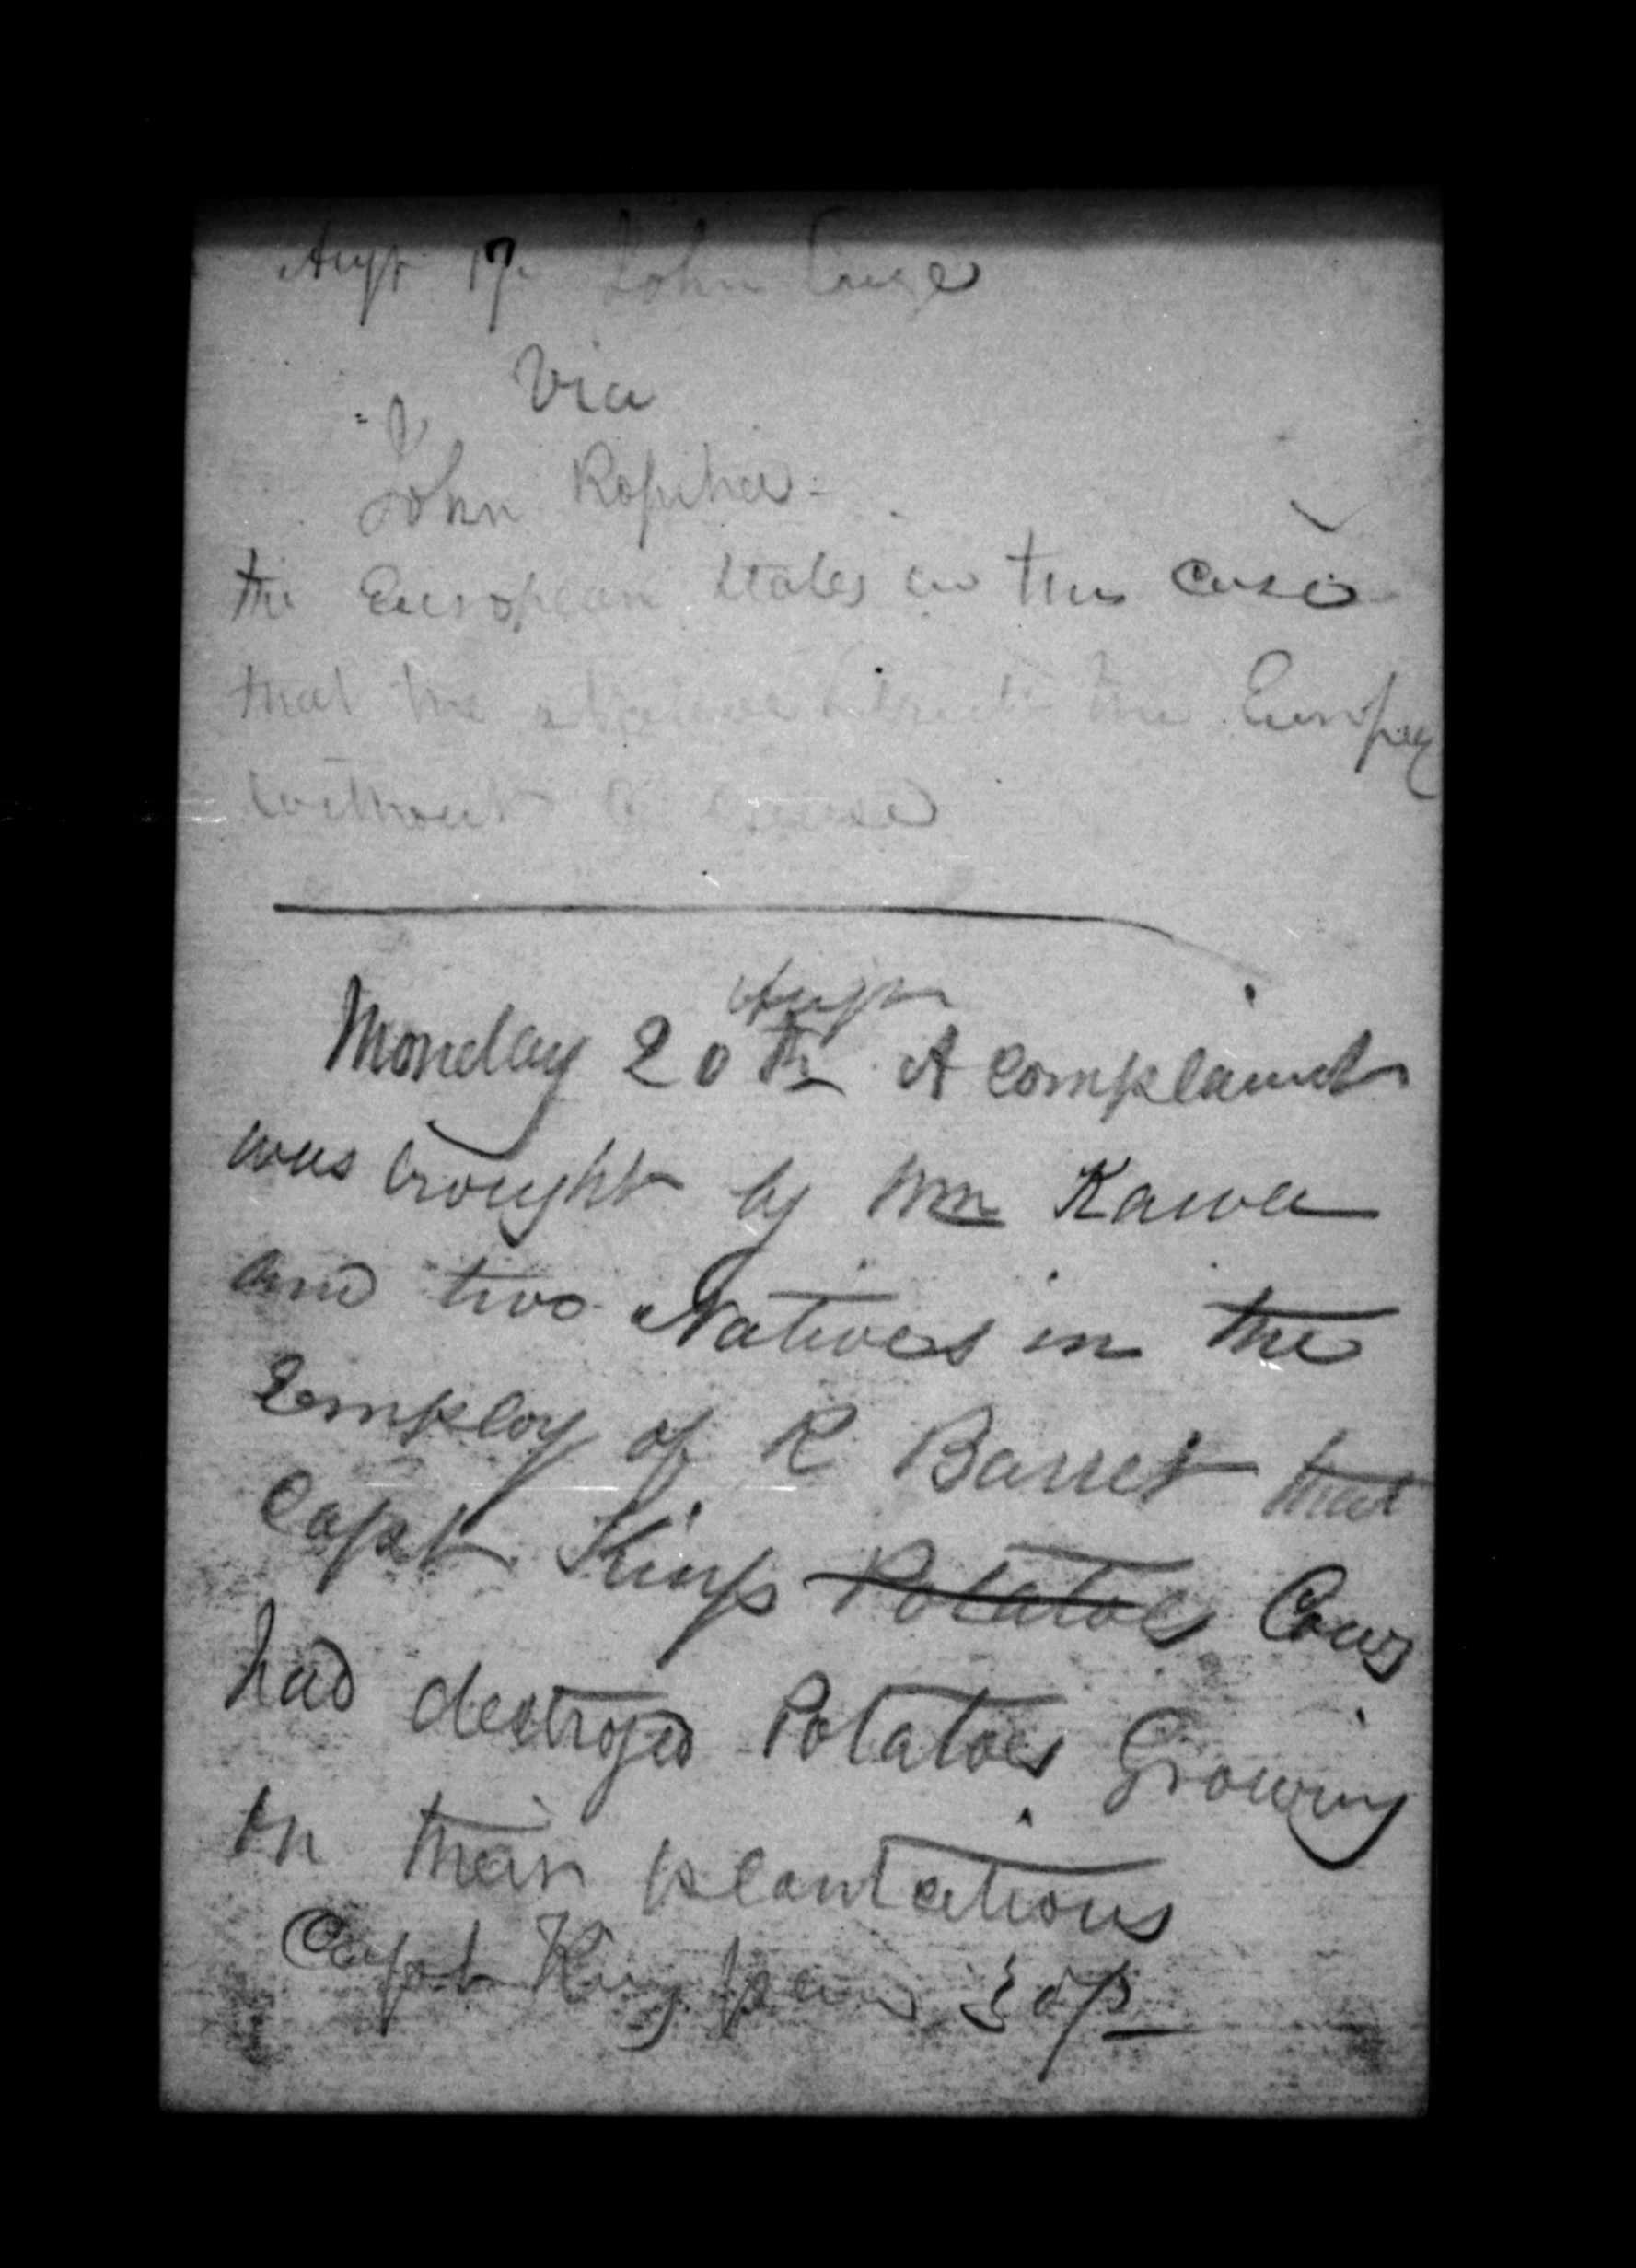 Augt 17. John
Via
John Ropiha -
the European states in this case
that the native struck the Europea
without a cause
Augt
Monday 20th A complaint
was brought by Wm Kawa
and two Natives in the
Employ of R Barret that
Capt. Kings Potatoes Cows
had destroyed Potatoes Growing
in their plantations
Capt King